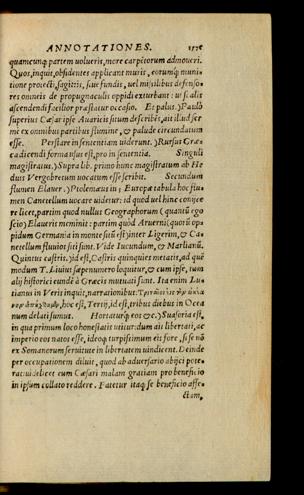 ANNOTATIONES.
quamcunq; partem uolueris, more carpẽtorum admoueri.
Quos, inquit, obsidentes applicant muris, eorumq; muni-
tione protecti, sagittis, siue fundis, uel missilibus defenso-
res omneis de propugnaculis oppidi exturbant: ut scalis
ascendendi facilior præstatur occasio. Et palus.) Paulò
superius Cæsar ipse Auarici situm describẽs, ait illud ser
mè ex omnibus partibus flumine, & palude circundatum
esse. Perstare in sententiam uiderunt.) Rursus Græ
ca dicendi forma usus est, pro in sententia. Singuli
magistratus.) Supra lib. primo hunc magistratum ab He
duis Vergobretum uocatum esse scribit. Secundum
flumen Elauer.) Ptolemæus in 3 Europæ tabula hoc flu-
men Canetellum uocare uidetur: id quod uel hinc conijce
re licet, partim quod nullus Geographorum (quantũ ego
scio) Elaueris meminit: partim quòd Aruerni (quorũ op-
pidum Germania in monte siti est) inter Ligerim, & Ca-
netellum fluuios siti sunt. Vide Iucundum, & Marlianũ.
Quintus castris.) id est, Castris quinquies metatis, ad quẽ
modum T. Liuius sæpenumero loquitur, & cum ipse, tum
alij historici eundẽ à Græcis mutuati sunt. Ita enim Luc
tianus in Veris inquit, narrationibus:
hoc est, Tertij, id est, tribus diebus in Ocea
num delati sumus. Hortaturq; eos &c.) Suasoria est,
in qua primum loco honestatis utitur: dum ait libertati, ac
imperio eos natos esse, ideoq; turpissimum eis fore, si se nõ
ex Romanorum seruitute in libertatem uindicent. Deinde
per occupationem diluit, quod ab aduersario abijci pote-
rat: uidelicet eum Cæsari malam gratiam pro beneficio
in ipsum collato reddere. Fatetur itaq; se beneficio affe-
ctum,